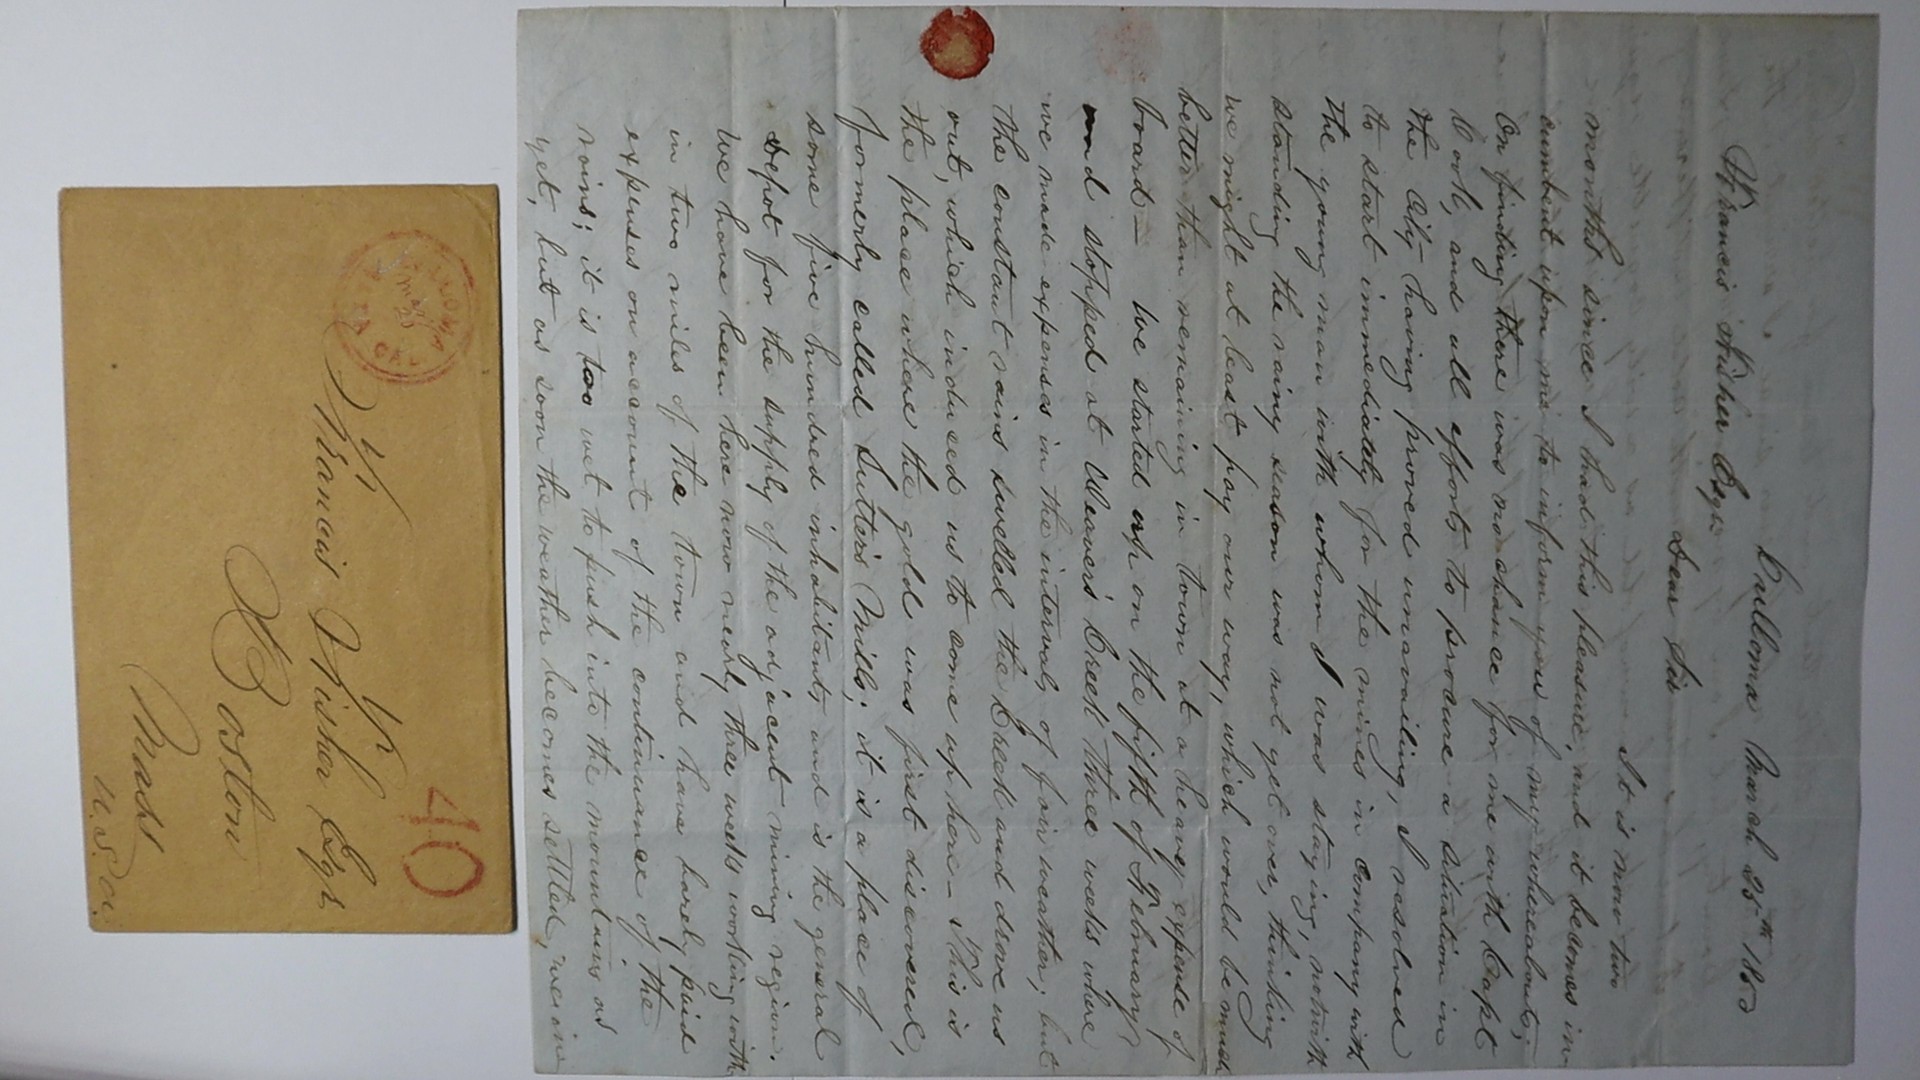 Culloma March 25th 1850
Francis Fisher Esqr
Dear Sir
It is now two
months since I had this pleasure, and it becomes in-
cumbent upon me to inform you of my whereabouts;
On finding there was no chance for me with Capt
Cook, and all efforts to procure a situation in
the City having proved unavailing, I resolved
to start immediately for the mines in company with
the young man with whom I was staying, notwith
standing the rainy season was not yet over, thinking
we might at least pay our way, which would be much
better than remaining in town at a heavy expense of
board— We started up on the fifth of February
and stopped at Weavers Creek three weeks where
we made expenses in the intervals of fair weather; but
the constant rains swelled the Creek and drove us
out, which induced us to come up here— This is
the place where the gold was first discovered,
formerly called Sutter's Mills; it is a place of
some five hundred inhabitants and is the general
depot for the supply of the adjacent mining region.
We have been here now nearly three weeks working with
in two miles of the town and have barely paid
expenses on account of the continuance of the
rains; it is too wet to push into the mountains as
yet, but as soon the weather becomes settled, we in
CULLOMA
Mar
25
CAL
40
Francis Fisher Esqr
Boston
Mass
U.S.A.